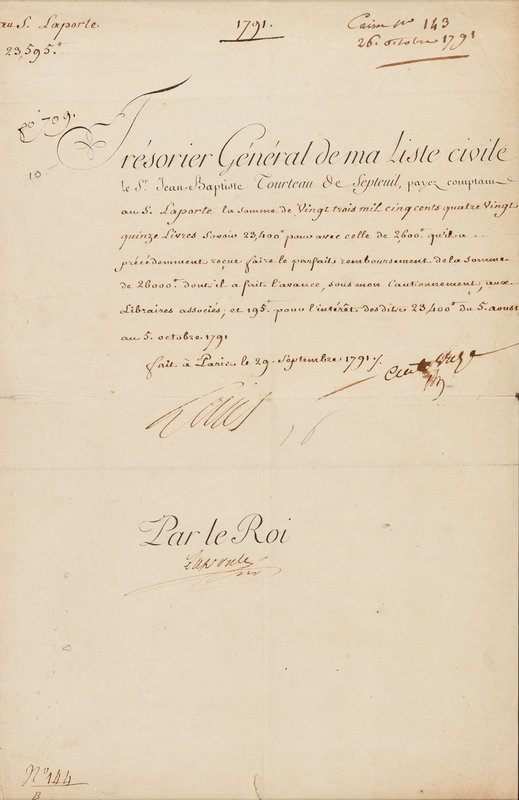 au S. Laporte
23,595.tt
1791.
Caisse no 143
26. octobre 1791
fo 709.
10
Trésorier Général de ma Liste civile
le Sr. Jean-Baptiste Tourteau de Septeuil, payez comptant
au S. Laporte la somme de Vingt trois mil cinq cents quatre Vingt
quinze Livres Savoir 23,400tt pour avec celle de 2600tt qu'il a
précédemment reçut faire le parfait remboursement de la somme
de 26000tt dont il a fait l'avance, sous mon Cautionnement, aux
Libraires associés, et 195tt pour l'intérêt desdits 23,400tt du 5. aoust
au 5. octobre 1791
fait à Paris le 29. Septembre 1791 ./.
Louis
16
Par le Roi
Laporte
No 144
B